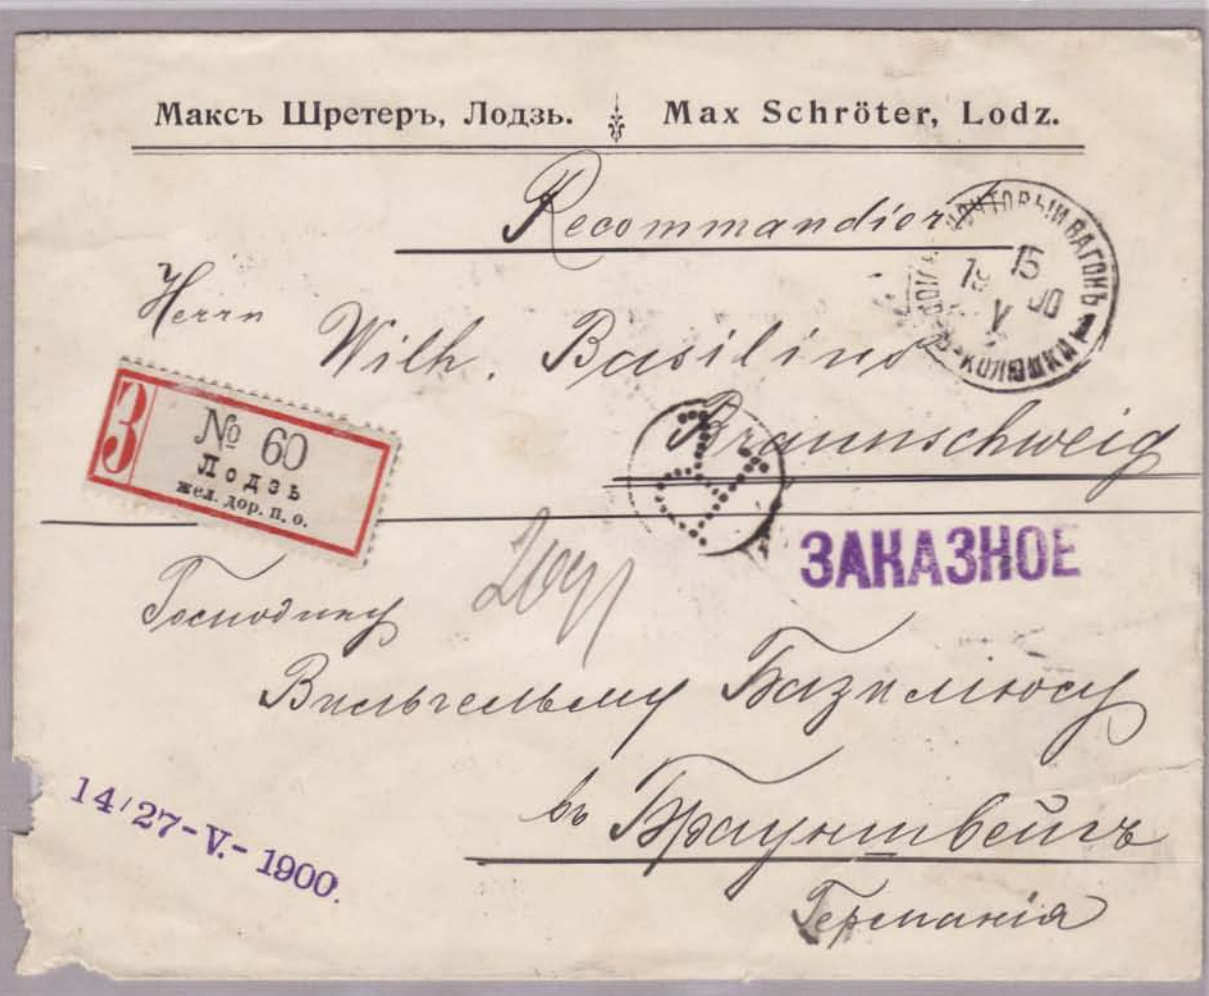 Максъ Шретеръ, Лодзь. Max Schröter, Lodz.
Recommandiert
ПОЧТОВЫЙ ВАГОНЪ
15
19 00
V
Herrn
Wilh. Basilius
Braunschweig
З
№ 60
Лодзь
жел. дор. п. о.
ЗАКАЗНОЕ
Господину
Вильгельму Базилiюсу
въ Брауншвейгъ
Германiя
14/27-V.-1900.